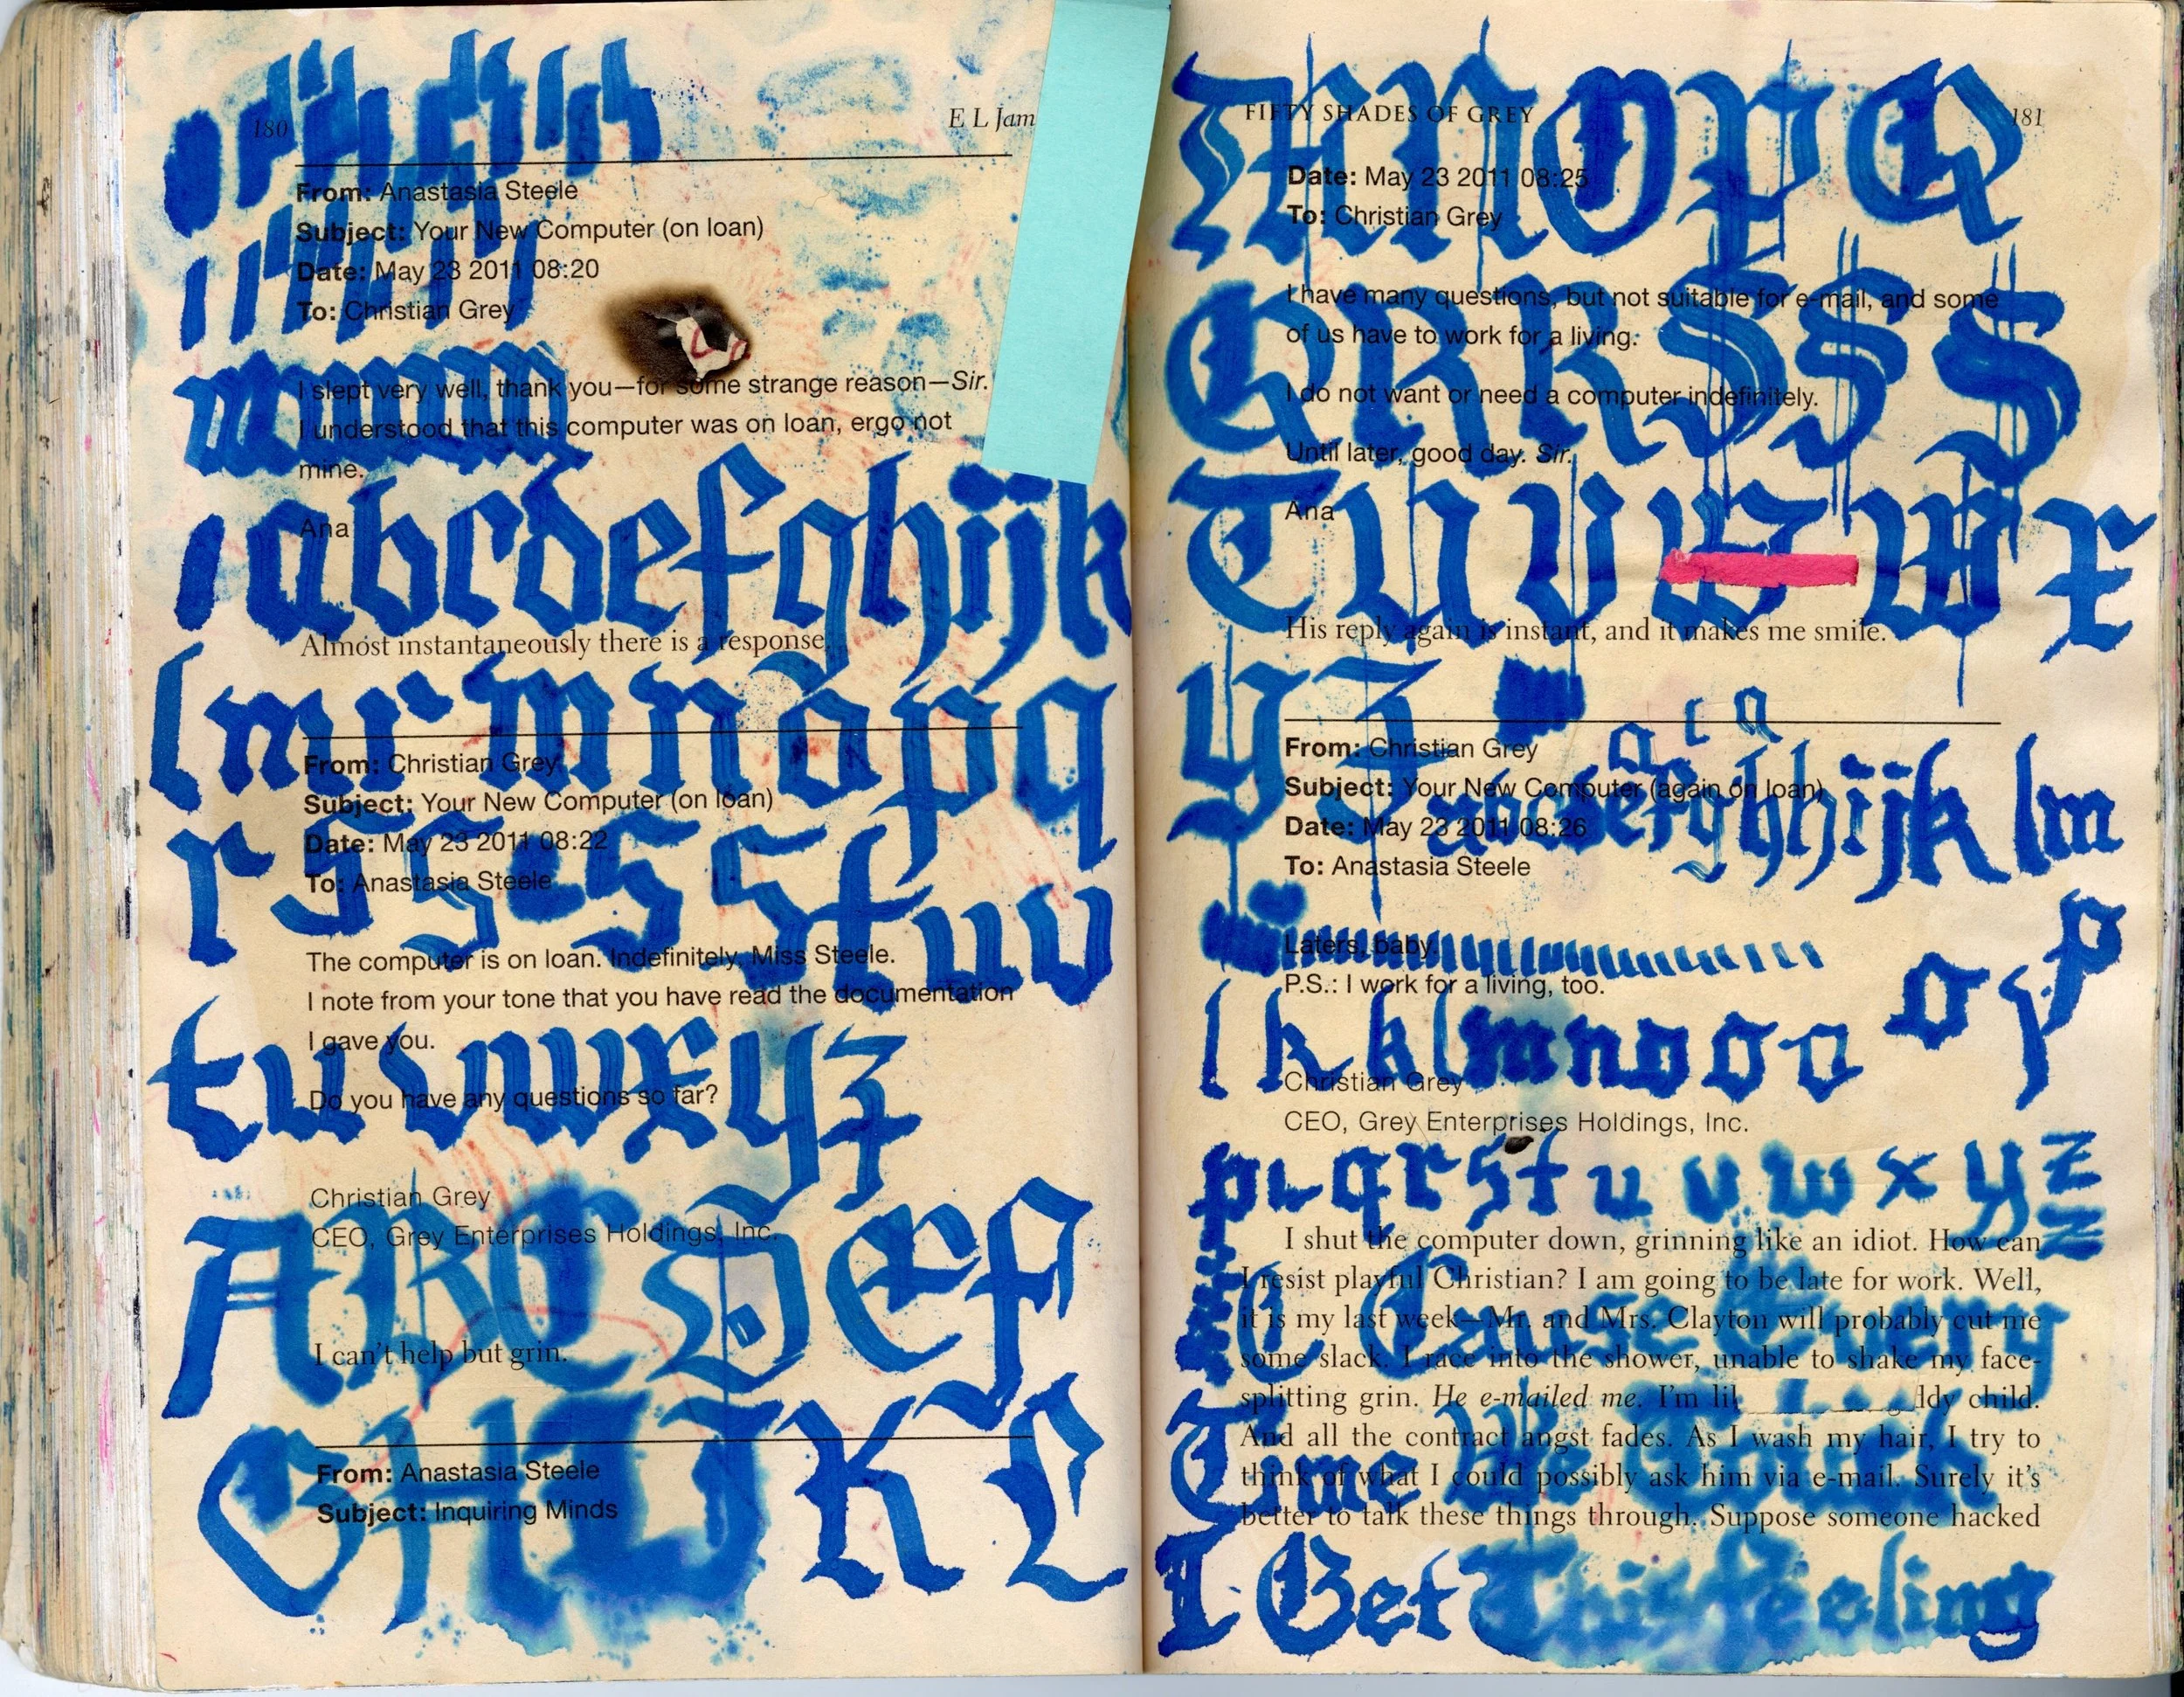 180
E L Jam
From: Anastasia Steele
Subject: Your New Computer (on loan)
Date: May 23 2011 08:20
To: Christian Grey
I slept very well, thank you—for some strange reason—Sir.
I understood that this computer was on loan, ergo not
mine.
Ana
a b c d e f g h i j k
Almost instantaneously there is a response.
l m r m n o p q
From: Christian Grey
Subject: Your New Computer (on loan)
Date: May 23 2011 08:22
To: Anastasia Steele
r s s s s t u v
The computer is on loan. Indefinitely, Miss Steele.
I note from your tone that you have read the documentation
I gave you.
t u v w x y z
Do you have any questions so far?
Christian Grey
CEO, Grey Enterprises Holdings, Inc.
A B C D E F
I can't help but grin.
G H I J K L
From: Anastasia Steele
Subject: Inquiring Minds
FIFTY SHADES OF GREY
181
M N O P Q
Date: May 23 2011 08:25
To: Christian Grey
I have many questions, but not suitable for e-mail, and some
of us have to work for a living.
Q R R S S S
I do not want or need a computer indefinitely.
Until later, good day. Sir.
Ana
T U V W W X
His reply again is instant, and it makes me smile.
Y Z
a c a
From: Christian Grey
Subject: Your New Computer (again on loan)
Date: May 23 2011 08:26
To: Anastasia Steele
a b c d e f g h h i j k l m
Laters, baby.
P.S.: I work for a living, too.
l k k l m n o o o o
p
Christian Grey
CEO, Grey Enterprises Holdings, Inc.
p q r s t u v w x y z
z
I shut the computer down, grinning like an idiot. How can
I resist playful Christian? I am going to be late for work. Well,
it is my last week—Mr. and Mrs. Clayton will probably cut me
C Cause Every
some slack. I race into the shower, unable to shake my face-
splitting grin. He e-mailed me. I'm lik ddy child.
And all the contract angst fades. As I wash my hair, I try to
Time We Touch
think of what I could possibly ask him via e-mail. Surely it's
better to talk these things through. Suppose someone hacked
I Get This Feeling